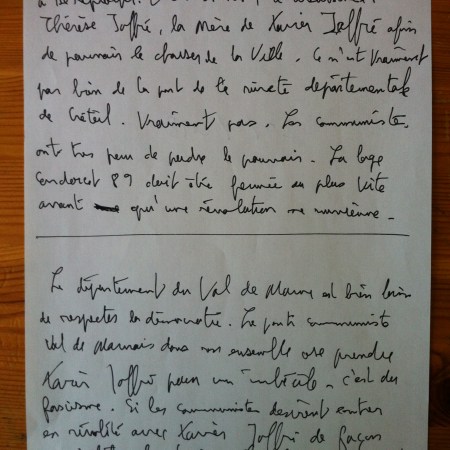 Thérèse Joffré, la Mère de Xavier Joffré afin
de pouvoir le chasser de la Ville. Ce n'est vraiment
pas bien de la part de la sûreté départementale
de Créteil. Vraiment pas. Les communistes
ont très peur de perdre le pouvoir. La loge
Condorcet 89 doit être fermée au plus vite
avant qu'une révolution ne survienne.
Le département du Val de Marne est bien loin
de respecter la démocratie. Le parti communiste
Val de Marnais dans son ensemble ose prendre
Xavier Joffré pour un imbécile, c'est du
fascisme. Si les communistes désirent entrer
en rivalité avec Xavier Joffré de façon